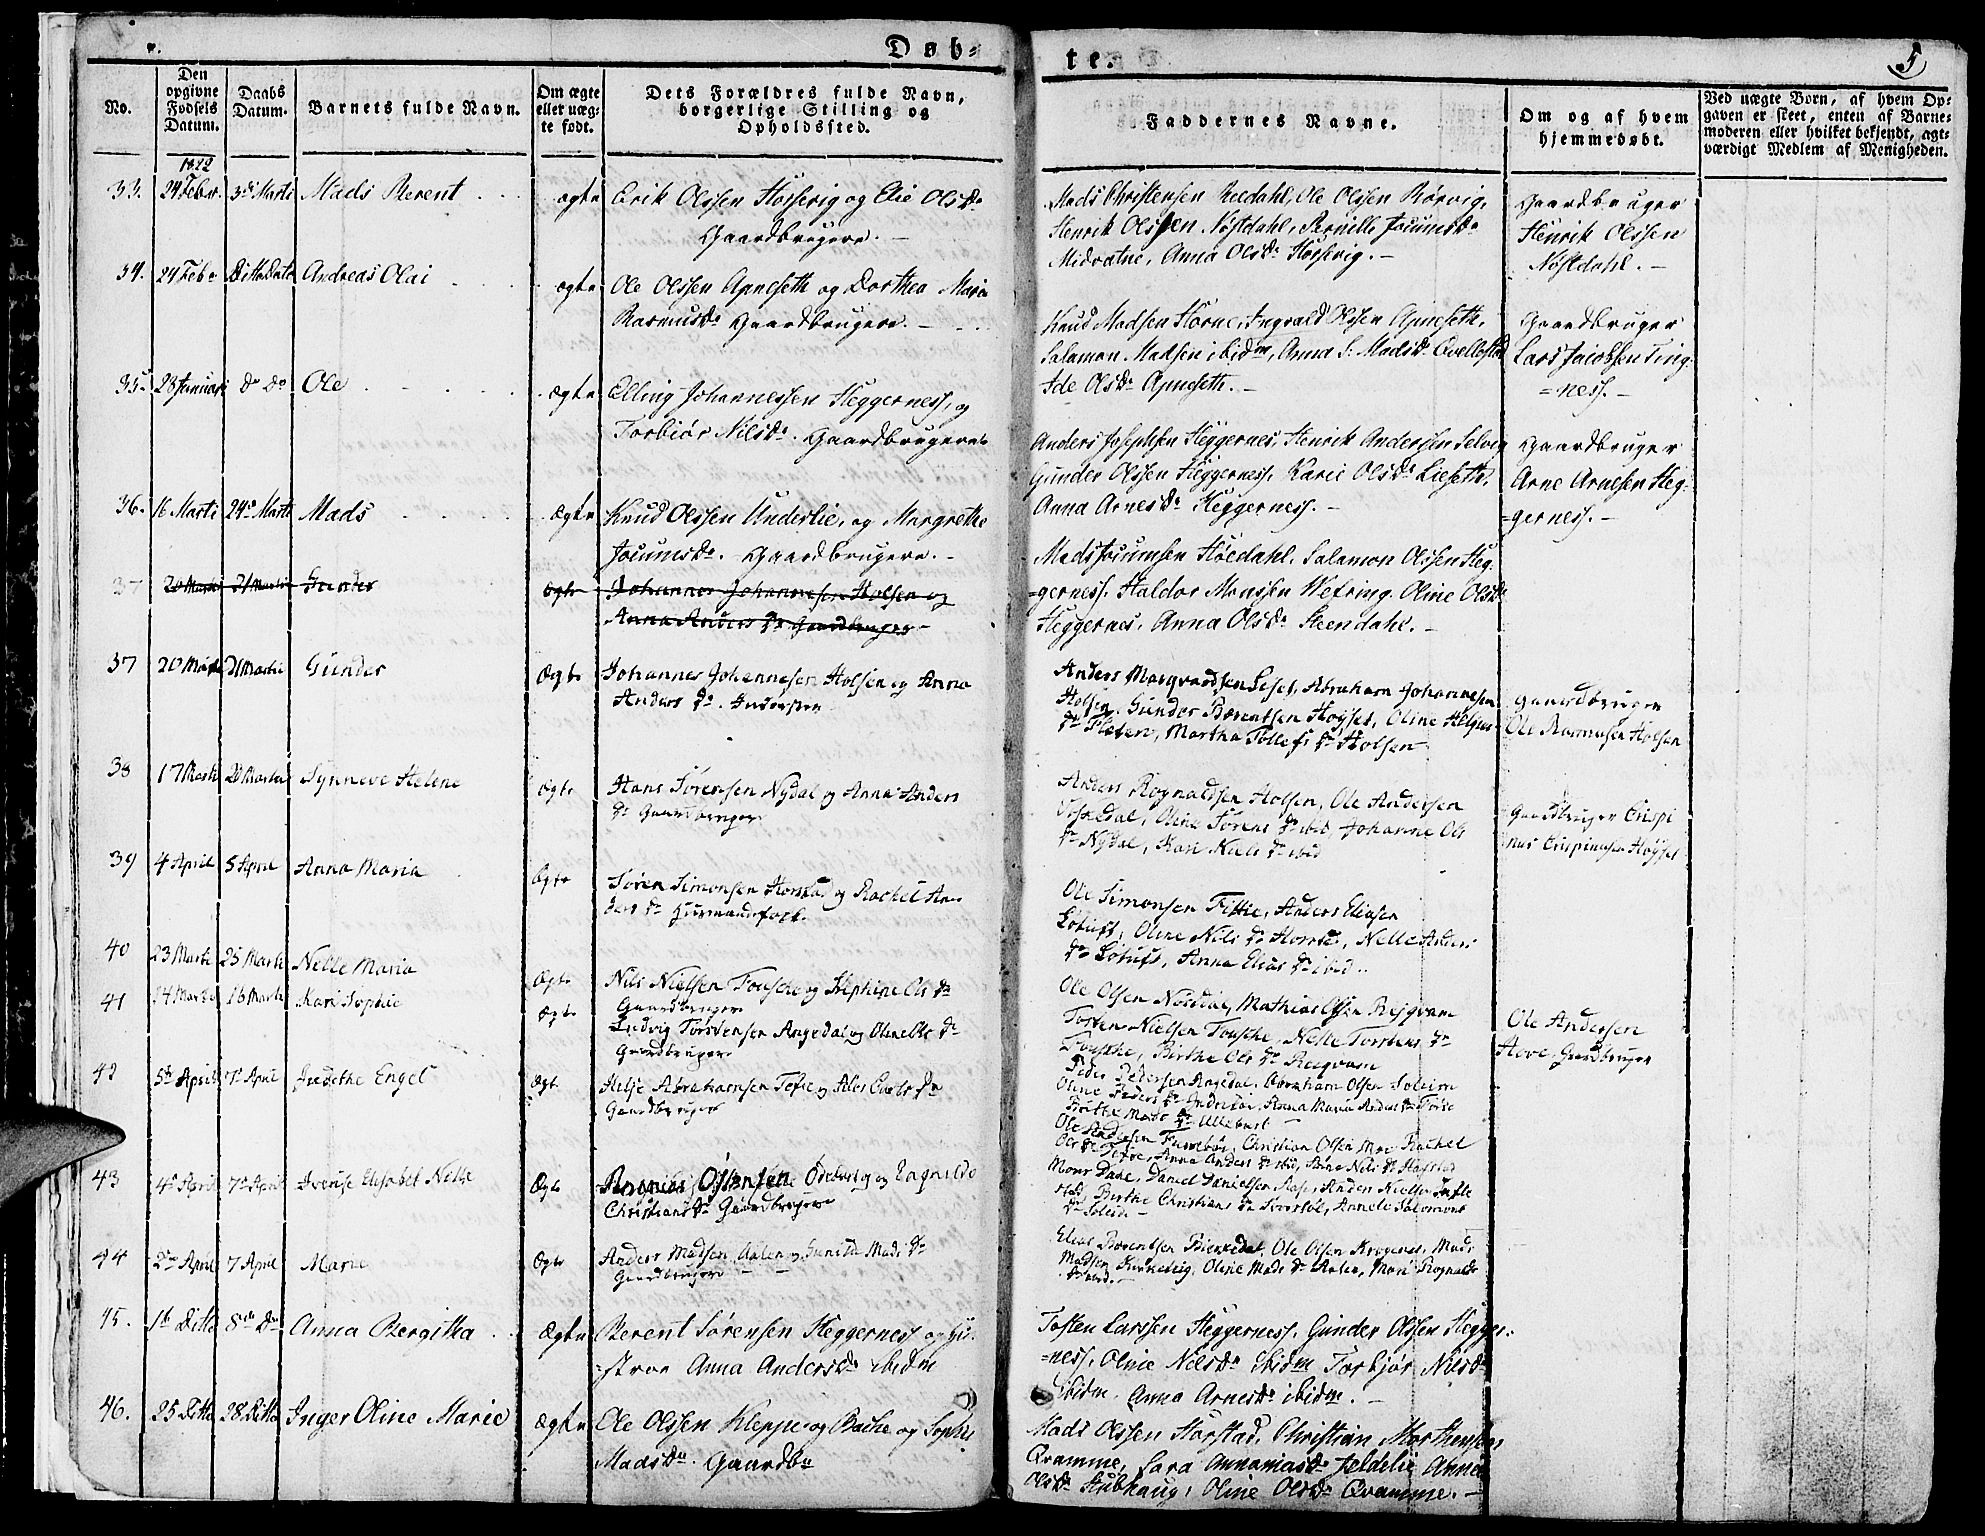 Døb-
te.
5
No.
Den opgivne Fødsels Datum.
Daabs Datum.
Barnets fulde Navn.
Om ægte eller uægte født.
Dets Forældres fulde Navn, borgerlige Stilling og Opholdssted.
Faddernes Navne.
Om og af hvem hjemmedøbt.
Ved uægte Børn, af hvem Opgaven er skeet, enten af Barnemoderen eller hvilket bekjendt, agtværdigt Medlem af Menigheden.
1822
33. 24 Febr. 3de Marti Mads Berent ægte Erik Olssen Horsevig og Elie Olsdr
Gaardbrugere.
Mads Christensen Reedahl, Ole Olssen Rørvig,
Henrik Olssen Nøstdahl, Pernille Jocumsdr
Midvatne, Anna Olsdr Horsevig.
Gaardbruger
Henrik Olssen
Nøstdahl.
34. 24 Febr Ditto Dato Andreas Olai ægte Ole Olssen Apneseth og Dorthea Maria
Rasmusdr Gaardbrugere.
Knud Madsen Horne, Ingvald Olssen Apneseth,
Salamon Madsen ibidm, Anna S. Madsdr Qvellestad
Ide Olsdr Apneseth.
Gaardbruger
Lars Jacobsen Ting-
=ness.
35. 23 Januari do do Ole ægte Elling Johannessen Heggerness, og
Torbiør Nilsdr. Gaardbrugere
Anders Josephsen Heggernes, Henrik Anderssen Selvig
Gunder Olssen Heggerness, Karie Olsdr Lieseth,
Anna Arnesdr Heggerness.
Gaardbruger
Arne Arnesen Heg-
=gerness.
36. 16 Marti 24de Marti Mads ægte Knud Olssen Underlie, og Margrethe
Jocumsdr. Gaardbrugere.
Mads Jocumsen Høedahl, Salamon Olssen Heg-
=gerness, Haldor Monssen Wefring, Oline Olsdr
Heggernes, Anna Olsdr Steendahl.
37 20 Marti 21 Marti Gunder ægte Johannes Johannesen Holsen og
Anna Anders Dr Gaardbruger
37 20 Marti 21 Marti Gunder Ægte Johannes Johannesen Holsen og Anna
Anders Dr. Inderster
Anders Marqvardsen Leset, Abraham Johannesen
Holsen, Gunder Bærentsen Høyset, Oline Helges
Dr Fleten, Martha Tollefs Dr Holsen
Gaardbruger
Ole Rasmusen Holsen
38 17 Marti 20 Marti Synneve Helene Ægte Hans Sørensen Nydal og Anna Anders
Dr Gaardbruger
Anders Rognaldsen Holsen, Ole Andersen
Oline Sørens Dr ibid Johanne Ols
Dr Nydal, Kari Niels Dr ibid
Gaardbruger Crispi
nus Crispinusen Høyset
39 4 April 5 April Anna Maria Ægte Søren Simonsen Horstad og Rachel An-
ders Dr Huusmandsfolk
Ole Simonsen Fittie, Anders Eliasen
Løtuft, Oline Nils Dr Horstad, Nelle Anders
Dr Løtuft, Anna Elias Dr ibid
40 23 Marti 25 Marti Nelle Maria Ægte Nils Nielsen Tousche og Josephine Ols Dr
Gaardbruger
Ole Olsen Norddal, Mathias Olsen Reiqvam
Torsten Nielsen Tousche, Nelle Torstens Dr
Tousche, Birthe Ols Dr Reeqvam
41 14 Marti 16 Marti Kari Sophie Ægte Ludvig Torstensen Angedal og Oline Ols Dr
Gaardbruger
Peder Pedersen Angedal, Abraham Olsen Soleim
Oline Peders Dr Indrebøe, Anna Maria Anders Dr
Brithe Mads Dr Ullebust
Ole Andersen
Hove, Gaardbruger
42 5te April 7de April Iudithe Engel Ægte Helje Abrahamsen Tefre og Ales Carls Dr
Gaardbruger
Ole Andersen Furrebøe, Christian Olsen Moe Rachel
Ols Dr Tefre, Anna Anders Dr ibid, Stine Nils Dr
43 4de April 7de April Elisabet Nelle Ægte Ananias Østensen Ødebost og Engnilde
Christians Dr Gaardbruger
Mons Dale, Daniel Danielsen Anders Nielsen
Birthe Christians Dr Annele Salomons
Dr
44 2den April 7 April Marie Ægte Anders Madsen Aalen og Gunilde Mads Dr
Gaardbruger
Elias Bærentsen Bierkedal, Ole Olsen Krogenes, Mads
Madsen Kirketeig, Oline Mads Dr Aalen, Mari Rognalds
Dr ibid.
45. 1te Ditto 8de Do Anna Bergitha Ægte Berent Sørensen Heggerness og Hu-
=stroe Anna Andersdr ibidm
Tosten Larssen Heggerness, Gunder Olssen Hegger-
=ness, Oline Nilsdr ibidm Torbjør Nilsdr
ibidm. Anna Arnesdr ibidm.
46. 25 Ditto 28 Ditto Inger Oline Marie Ægte Ole Olssen Kleppe og Bache og Sophie
Madsdr. Gaardbr
Mads Olssen Horstad, Christian Morthenssen
Qvamme, Sara Annaniasdr Feldelie Anne
Olsdr Stubhaug, Oline Olsdr Qvamme.